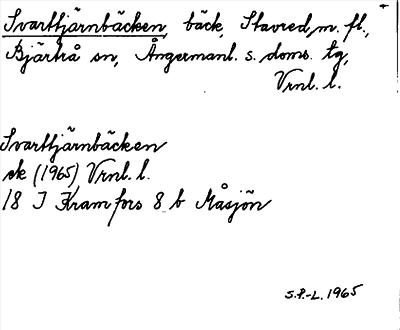 Svarttjärnbäcken, bäck, Stavred m. fl.,
Bjärtrå sn, Ångermanl. s. doms. tg,
Vrnl. l.
Svarttjärnbäcken
ek (1965) Vrnl. l.
18 I Kramfors 8 b Måsjön
S.P.-L. 1965